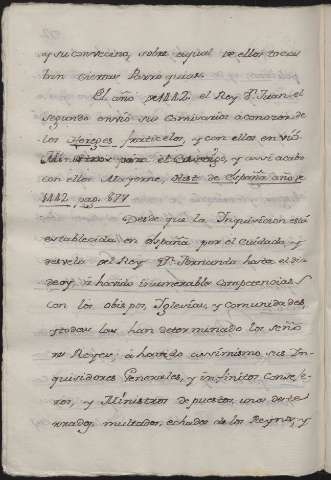 y su convecino, sobre a qual de ellos tocas
ban ciertas Parroquias.
El año de 1442. el Rey Dn. Juan el
segundo envió sus Comisarios a conocer de
los Hereges fraticelos, y con ellos en vió
Ministros para el y assi acabó
con ellos Mayorne, Hist. de España año de
1442. pag. 677
Desde que la Inquisicion está
establecida en España por el Cuidado, y
desvelo del Rey Dn. Fernando hasta el di-
de oy, á havido innumerables competencias
con los obispos, Iglesias, y comunidades
y todas las han determinado los seño
res Reyes; á havido assimismo sus In-
quisidores Generales, y infinitos Conseje
ros, y Ministros depuestos, unos deste-
rrados, multados, echados de los Reynos, y